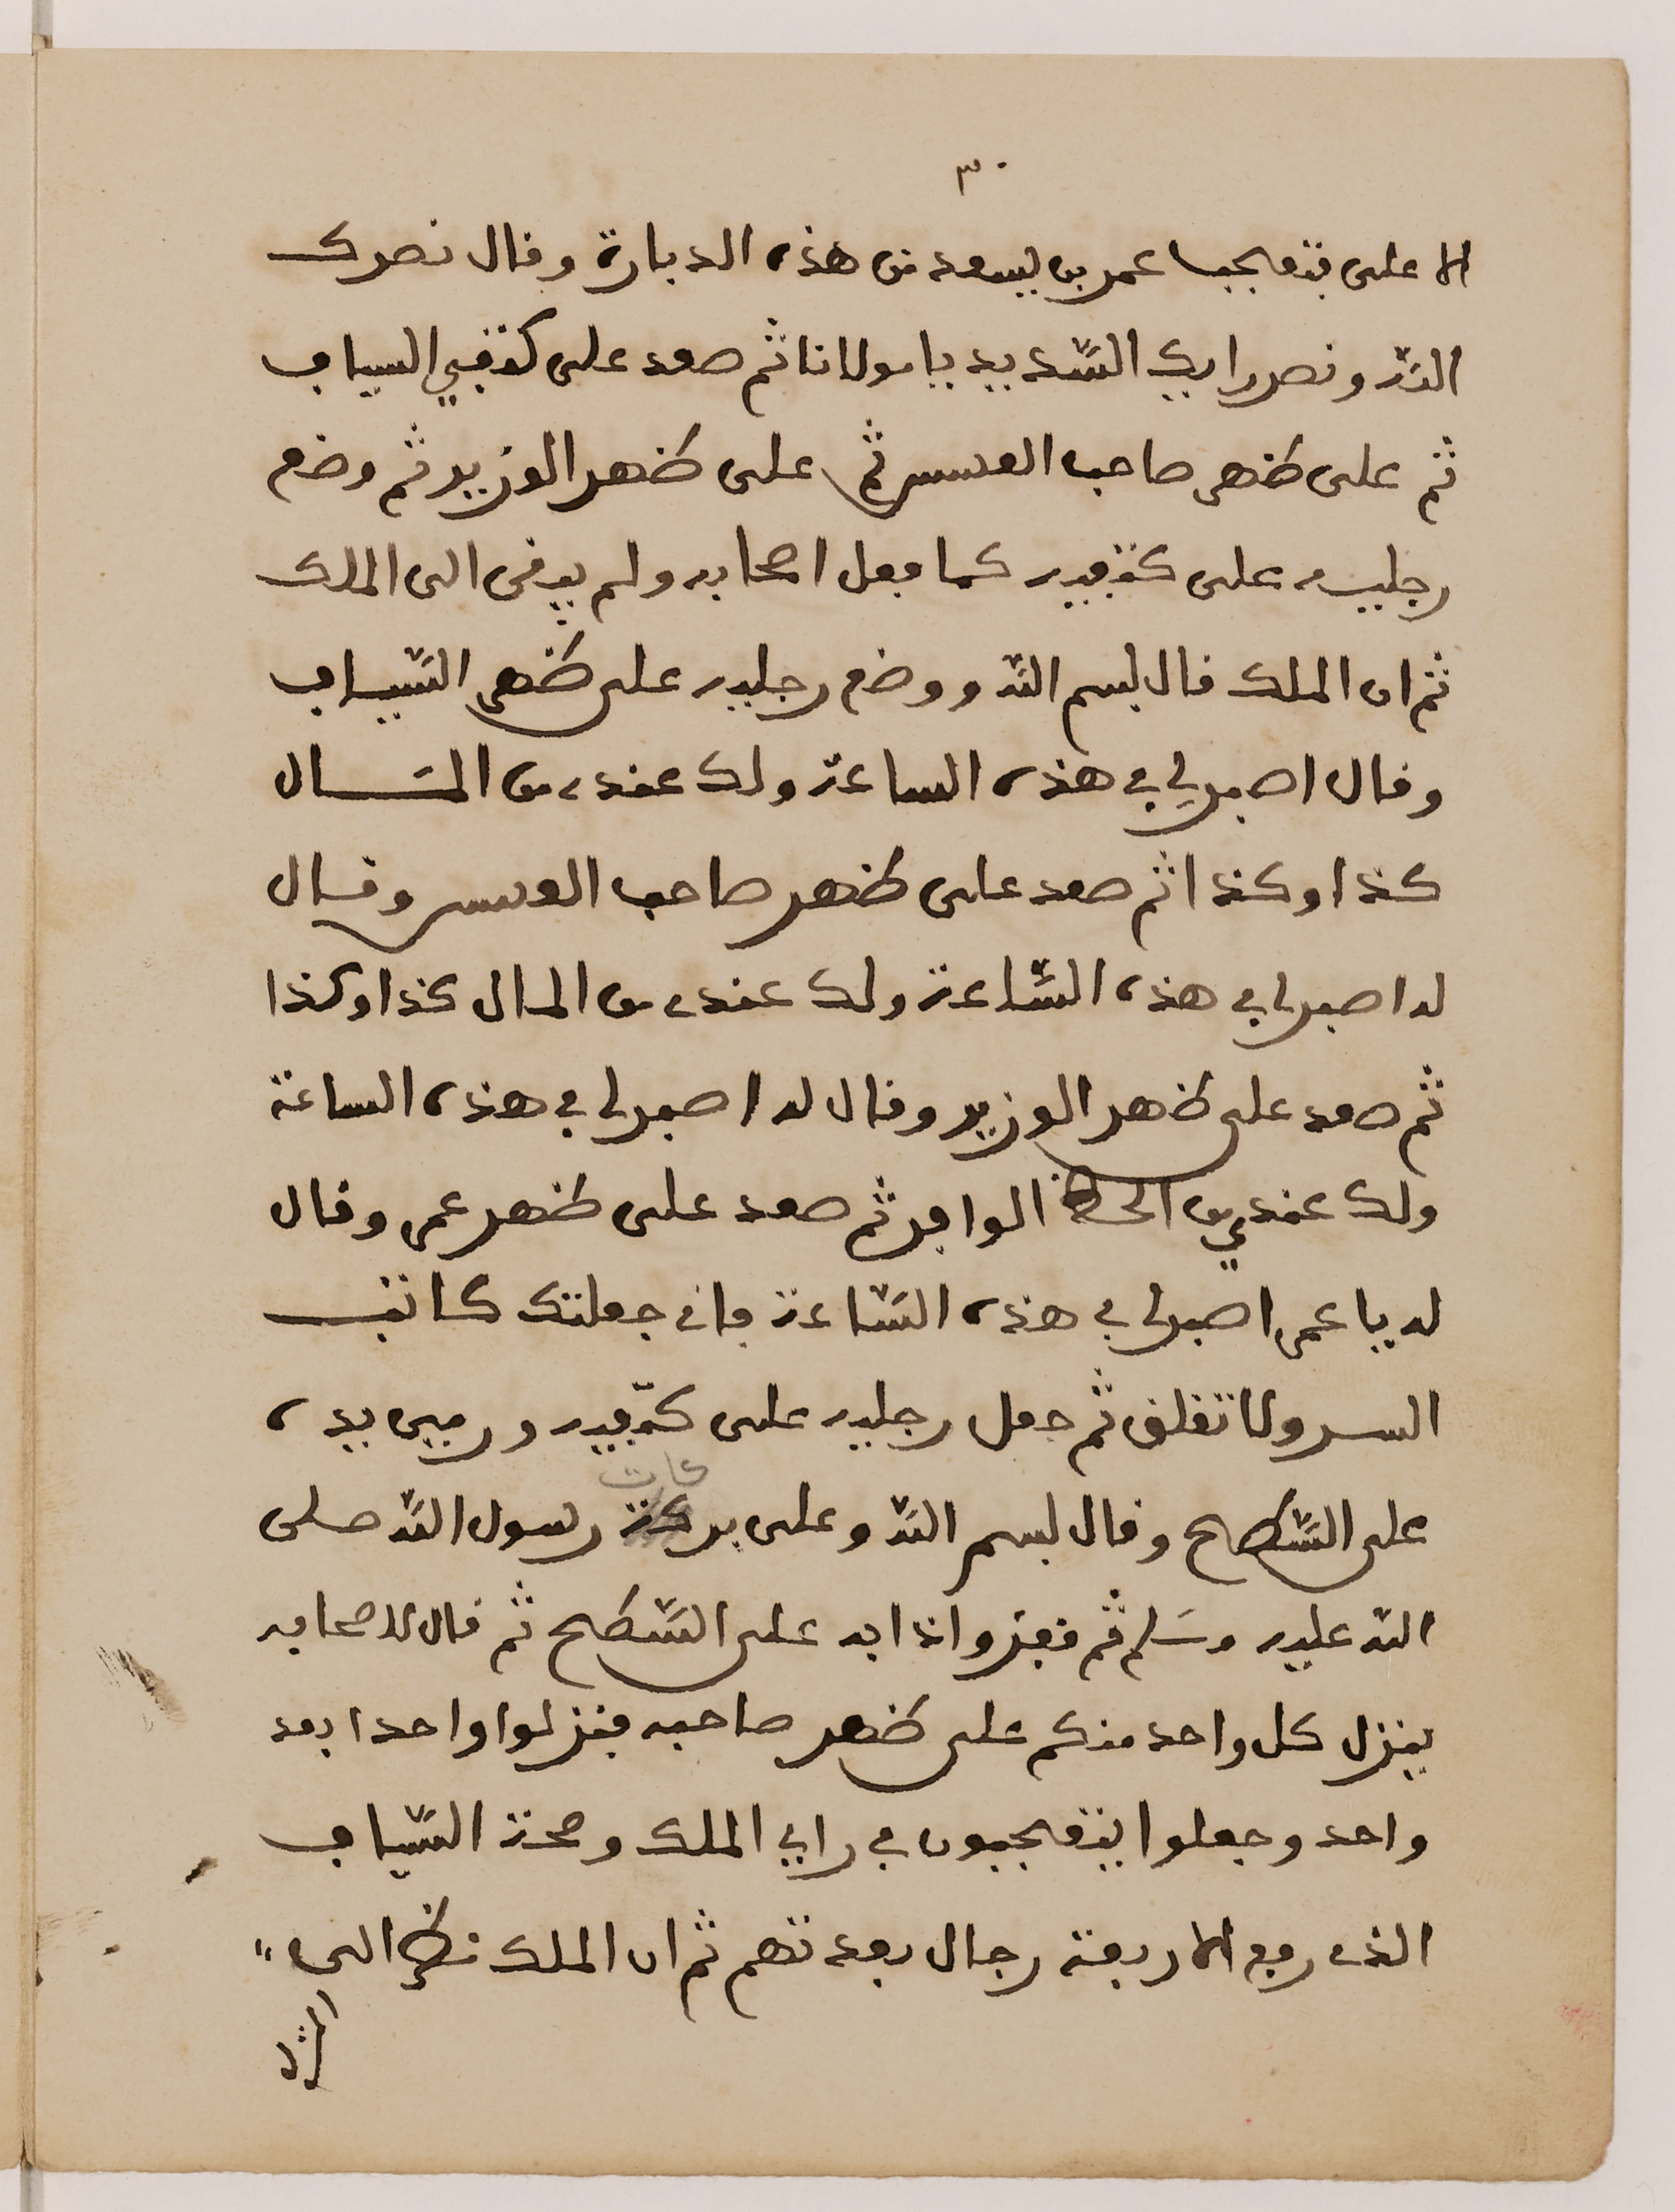 ٣٠
الاعلى فتعجب عمر بن سعد من هذه الدبارة وقال نصرك
الله ونصر رايك السديد يا مولانا ثم صعد على كتفي السياف
ثم على ظهر صاحب العسس ثم على ظهر الوزير ثم وضع
رجليه على كتفيه كما فعل اصحابه ولم يبقى الى الملك
ثم ان الملك قال بسم الله ووضع رجليه على ظهر السياف
وقال اصبر لي في هذه الساعة ولك عندي من المال
كذا وكذا ثم صعد على ظهر صاحب العسس وقال
له اصبر لي في هذه الساعة ولك عندي من المال كذا وكذا
ثم صعد على ظهر الوزير وقال له اصبر لي في هذه الساعة
ولك عندي من الحظ الوافر ثم صعد على ظهر عمر وقال
له يا عمر اصبر لي في هذه الساعة فاني جعلتك كاتب
السر ولا تقلق ثم جعل رجليه على كتفيه ورمى يده
على السطح وقال بسم الله وعلى بركات رسول الله صلى
الله عليه وسلم ثم قفز واذا به على السطح ثم قال لاصحابه
ينزل كل واحد منكم على ظهر صاحبه فنزلوا واحدا بعد
واحد وجعلوا يتعجبون في راي الملك وصحة السياف
الذي رفع الاربعة رجال بعدتهم ثم ان الملك نظر الى